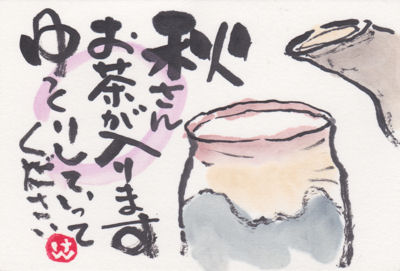 秋さん
お茶が入ります
ゆっくりしていって
ください